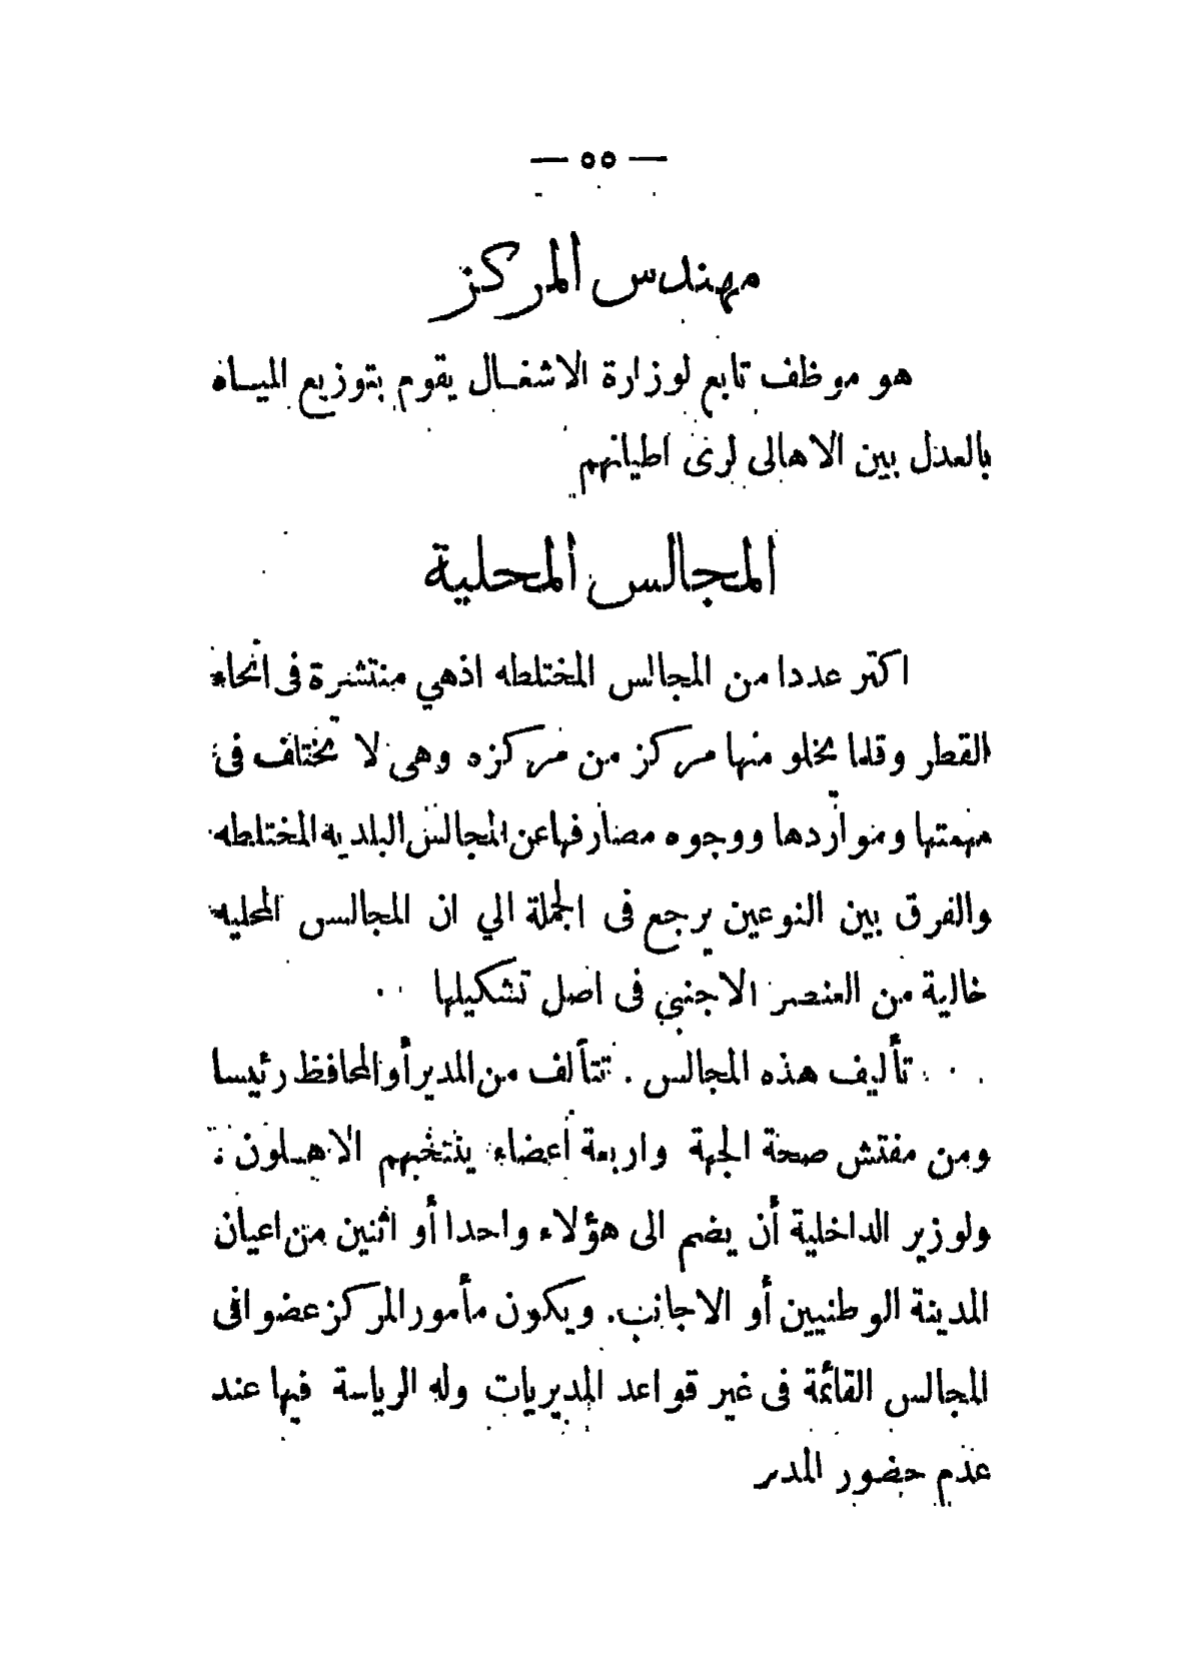 — ٥٥ —
مهندس المركز
هو موظف تابع لوزارة الاشغال يقوم بتوزيع المياه
بالعدل بين الاهالى لرى اطيانهم
المجالس المحلية
اكثر عددا من المجالس المختلطه اذهي منتشرة فى انحاء
القطر وقلما يخلو منها مركز من مركزه وهى لا تختلف فى
مهمتها ومواردها ووجوه مصارفها عن المجالس البلدية المختلطه
والفرق بين النوعين يرجع فى الجملة الي ان المجالس المحليه
خالية من العنصر الاجنبي فى اصل تشكيلها
تأليف هذه المجالس . تتألف من المدير أو المحافظ رئيسا
ومن مفتش صحة الجهة واربعة أعضاء ينتخبهم الاهلون .
ولوزير الداخلية أن يضم الى هؤلاء واحدا أو اثنين من اعيان
المدينة الوطنيين أو الاجانب. ويكون مأمور المركز عضوا فى
المجالس القائمة فى غير قواعد المديريات وله الرياسة فيها عند
عدم حضور المدير